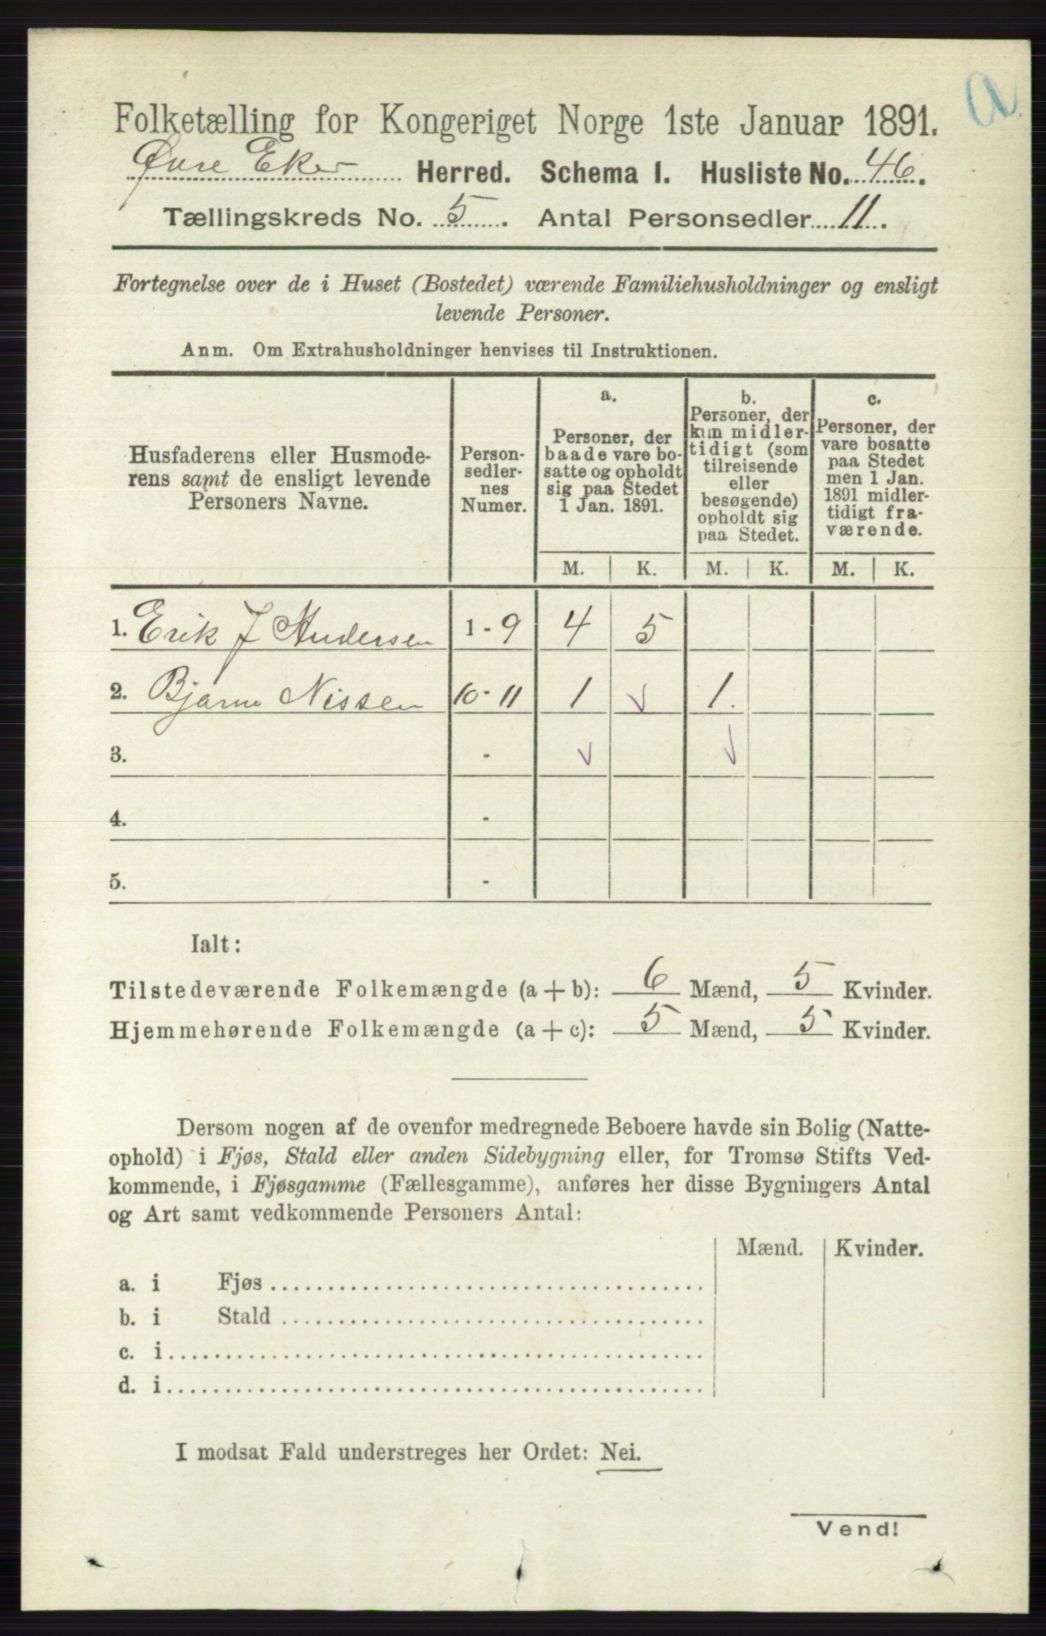 a
Folketælling for Kongeriget Norge 1ste Januar 1891.
Øvre Eker Herred. Schema I. Husliste No. 46.
Tællingskreds No. 5. Antal Personsedler 11.
Fortegnelse over de i Huset (Bostedet) værende Familiehusholdninger og ensligt
levende Personer.
Anm. Om Extrahusholdninger henvises til Instruktionen.
Husfaderens eller Husmode-
rens samt de ensligt levende
Personers Navne.
Person-
sedler-
nes
Numer.
a.
Personer, der
baade vare bo-
satte og opholdt
sig paa Stedet
1 Jan. 1891.
b.
Personer, der
kun midler-
tidigt (som
tilreisende
eller
besøgende)
opholdt sig
paa Stedet.
c.
Personer, der
vare bosatte
paa Stedet
men 1 Jan.
1891 midler-
tidigt fra-
værende.
M. K. M. K. M. K.
1. Erik J Andersen 1-9 4 5
2. Bjarne Nissen 10-11 1 1.
3. -
4. -
5. -
Ialt:
Tilstedeværende Folkemængde (a+b): 6 Mænd, 5 Kvinder.
Hjemmehørende Folkemængde (a+c): 5 Mænd, 5 Kvinder.
Dersom nogen af de ovenfor medregnede Beboere havde sin Bolig (Natte-
ophold) i Fjøs, Stald eller anden Sidebygning eller, for Tromsø Stifts Ved-
kommende, i Fjøsgamme (Fællesgamme), anføres her disse Bygningers Antal
og Art samt vedkommende Personers Antal:
Mænd. Kvinder.
a. i Fjøs
b. i Stald
c. i
d. i
I modsat Fald understreges her Ordet: Nei.
Vend!